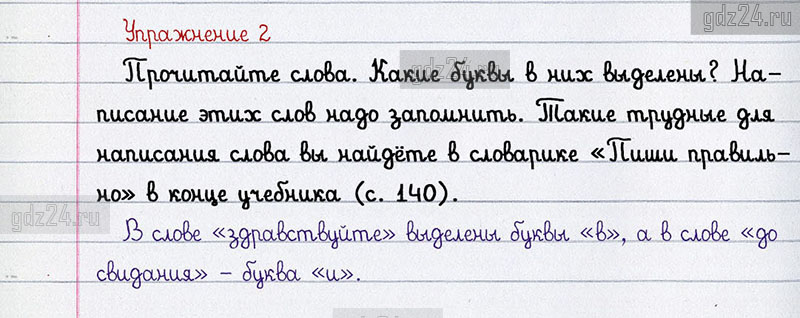 gdz24.ru
Упражнение 2
Прочитайте слова. Какие буквы в них выделены? На-
gdz24.ru
писание этих слов надо запомнить. Такие трудные для
написания слова вы найдёте в словарике «Пиши правиль-
но» в конце учебника (с. 140).
gdz24.ru
В слове «здравствуйте» выделены буквы «в», а в слове «до
свидания» – буква «и».